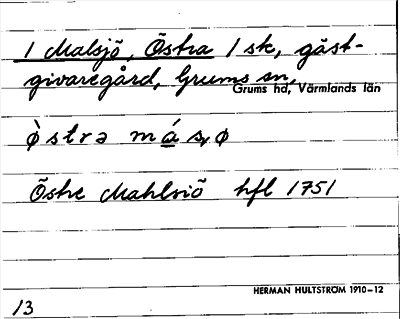 1 Malsjö, Östra 1 sk, gäst-
givaregård, Grums sn,
Grums hd, Värmlands län
ø̀strə má̱sꭓø
Östre Mahlsiö hfl 1751
HERMAN HULTSTRÖM 1910–12
13